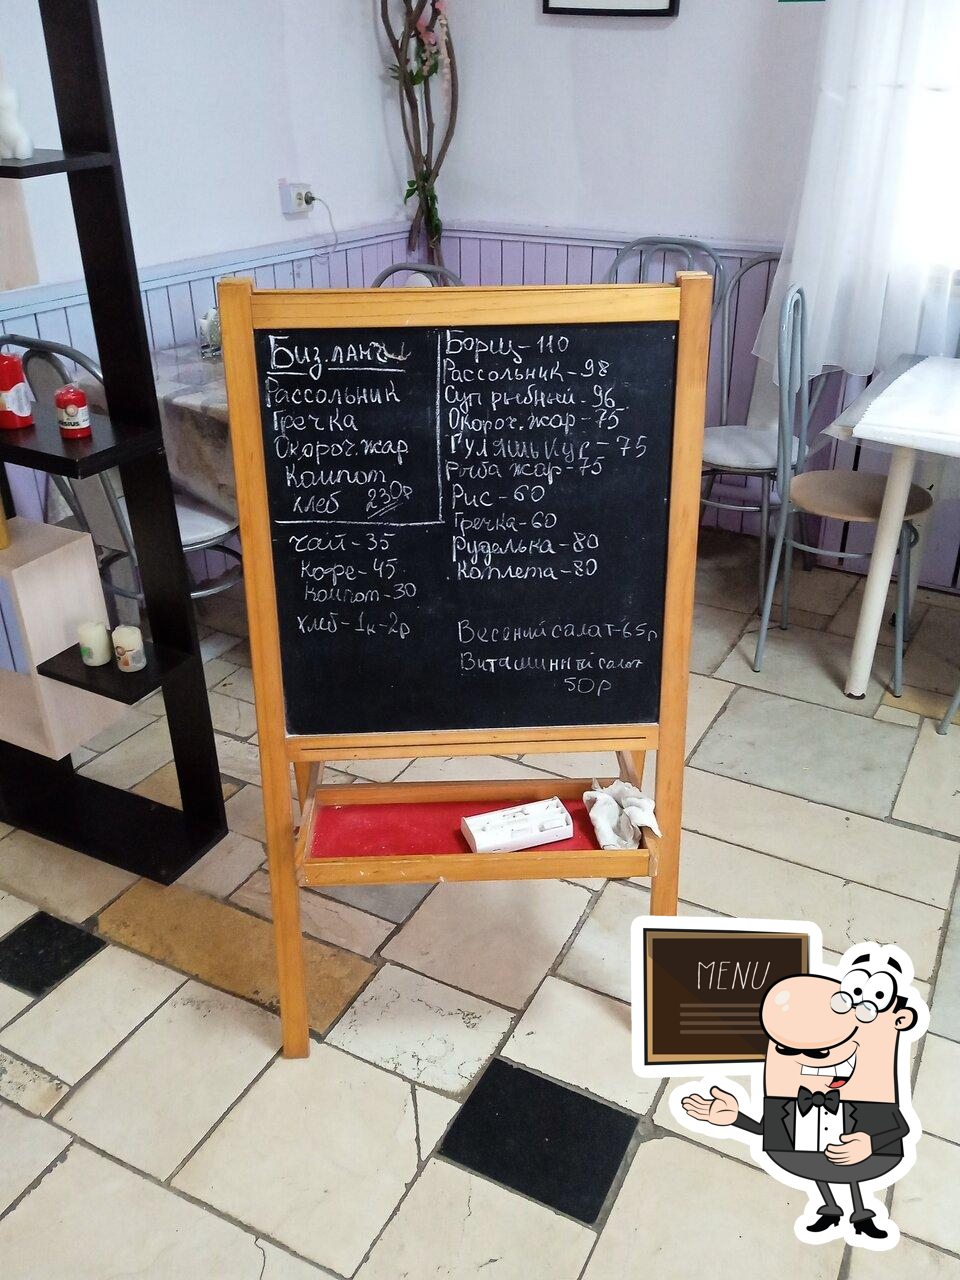 Биз.ланчи
Рассольник
Гречка
Окороч.жар
Компот
хлеб 230р
Чай-35
Кофе-45
Компот-30
хлеб-1к-2р
Борщ-110
Рассольник-98
Суп рыбный-96
Окороч.жар-75
Гуляшь кур-75
Рыба жар-75
Рис-60
Гречка-60
Руделька-80
Котлета-80
Весений салат-65р
Витаминный салат
50р
MENU